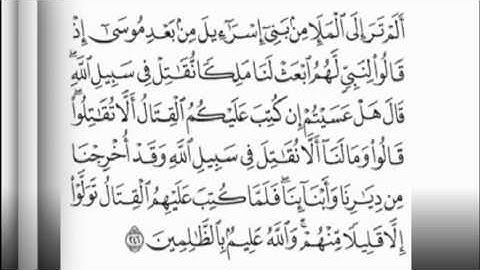 أَلَمْ تَرَ إِلَى ٱلْمَلَإِ مِنۢ بَنِىٓ إِسْرَٰٓءِيلَ مِنۢ بَعْدِ مُوسَىٰٓ إِذْ
قَالُوا۟ لِنَبِىٍّ لَّهُمُ ٱبْعَثْ لَنَا مَلِكًا نُّقَٰتِلْ فِى سَبِيلِ ٱللَّهِ ۖ
قَالَ هَلْ عَسَيْتُمْ إِن كُتِبَ عَلَيْكُمُ ٱلْقِتَالُ أَلَّا تُقَٰتِلُوا۟ ۖ
قَالُوا۟ وَمَا لَنَآ أَلَّا نُقَٰتِلَ فِى سَبِيلِ ٱللَّهِ وَقَدْ أُخْرِجْنَا
مِن دِيَٰرِنَا وَأَبْنَآئِنَا ۖ فَلَمَّا كُتِبَ عَلَيْهِمُ ٱلْقِتَالُ تَوَلَّوْا۟
إِلَّا قَلِيلًا مِّنْهُمْ ۗ وَٱللَّهُ عَلِيمٌۢ بِٱلظَّٰلِمِينَ ٢٤٦